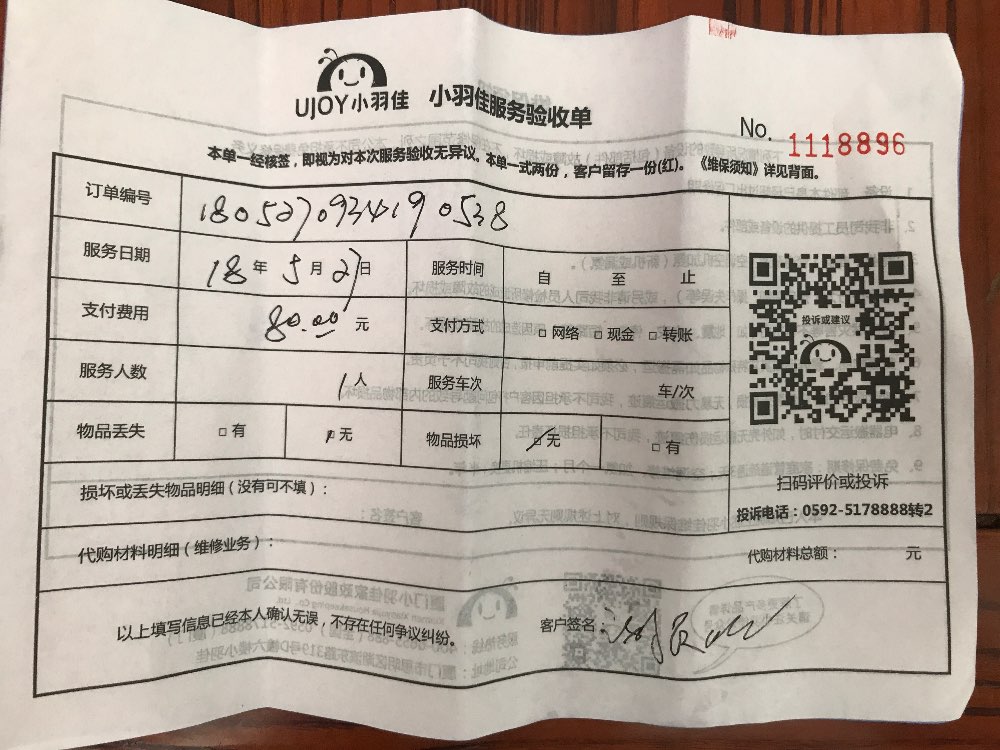 UJOY小羽佳 小羽佳服务验收单
No. 1118896
本单一经核签，即视为对本次服务验收无异议。本单一式两份，客户留存一份(红)。《维保须知》详见背面。
订单编号 180527093419 0538
服务日期 18 年 5 月 27 日 服务时间 自 至 止
支付费用 80.00 元 支付方式 □ 网络 □ 现金 □ 转账
投诉或建议
服务人数 1 人 服务车次 车/次
物品丢失 □ 有 □ 无 物品损坏 □ 无 □ 有
扫码评价或投诉
损坏或丢失物品明细（没有可不填）：
投诉电话：0592-5178888转2
代购材料明细（维修业务）： 代购材料总额： 元
以上填写信息已经本人确认无误，不存在任何争议纠纷。 客户签名：